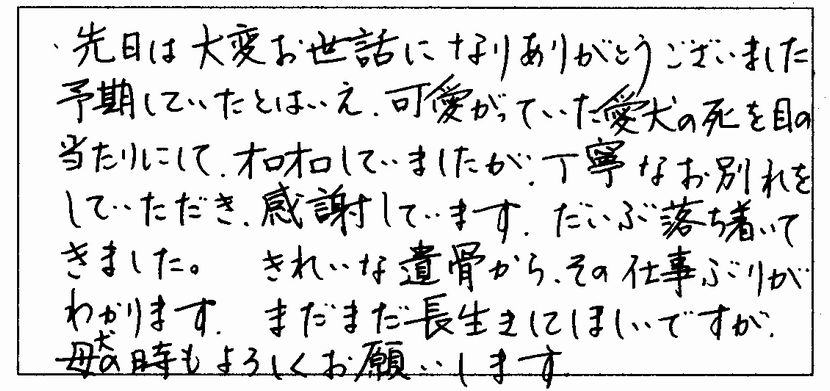 先日は大変お世話になりありがとうございました
予期していたとはいえ、可愛がっていた愛犬の死を目の
当たりにして、オロオロしていましたが、丁寧なお別れを
していただき、感謝しています、だいぶ落ち着いて
きました。 きれいな遺骨から、その仕事ぶりが
わかります、 まだまだ長生きしてほしいですが、
母犬の時もよろしくお願いします